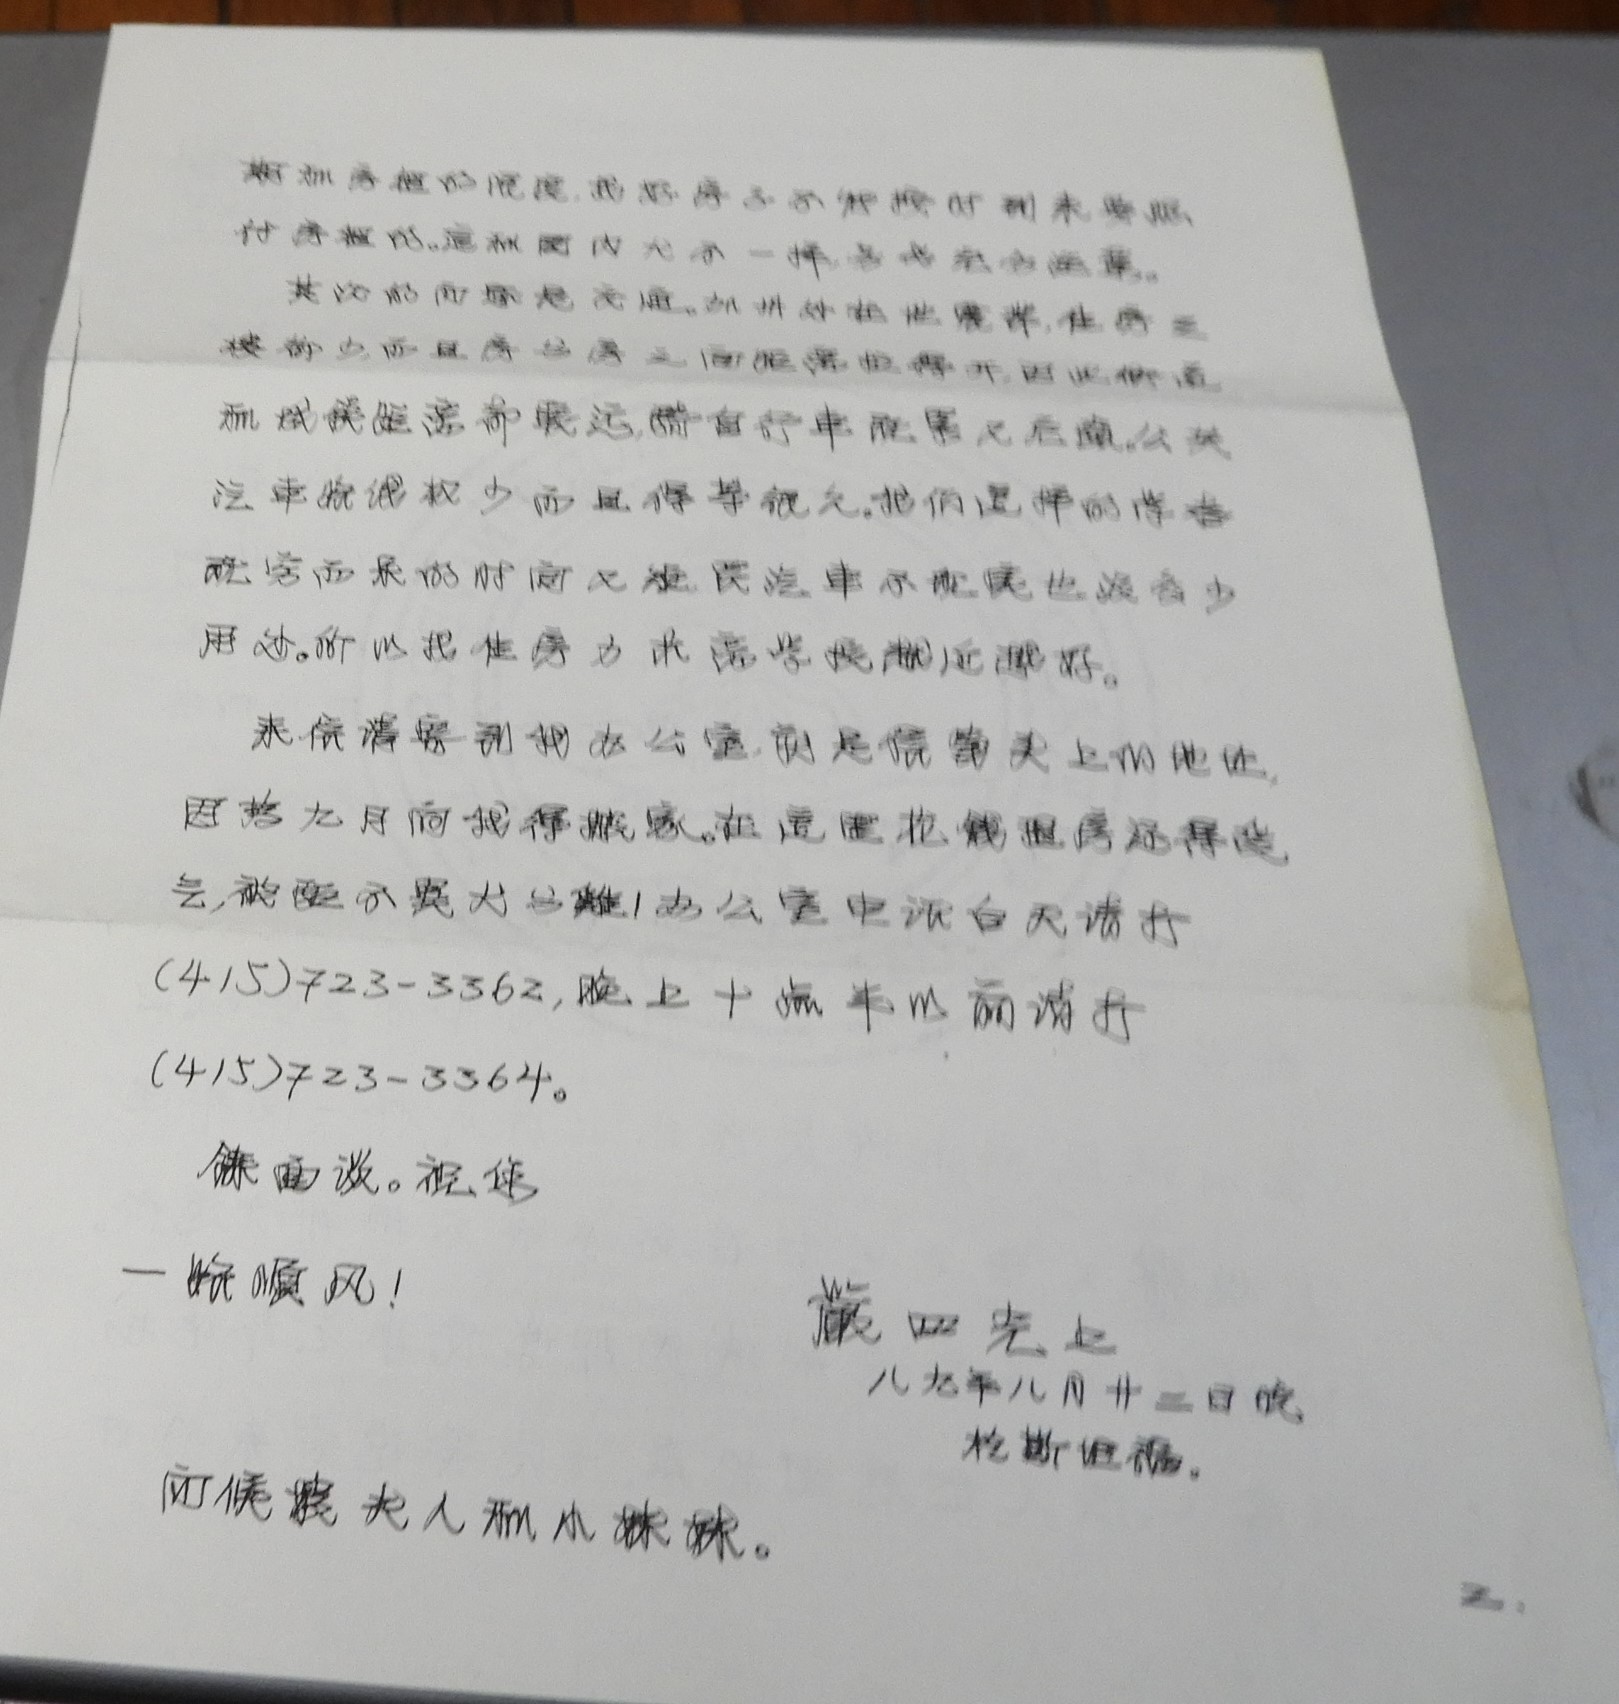 期和房租的限度。我好房子不能按时到来要照
付房租的。这和国内大不一样,
其次的问题是交通。加州处在地震带,住房三
楼都少而且房与房之间距离拉得开,因此街道
和城镇距离都很远,骑自行车既累又危险。公共
汽车路线较少而且得等很久。
既害而来的时间又短,买汽车不配 也没有多少
用处。所以把住房力求离学校越近越好。
来信请寄到我办公室,就是信笺头上的地址,
因整九月间我得搬家。在这里花钱租房还得受
气,被 不异犬与雞!办公室电话白天请打
(415)723-3362,晚上十点半以前请打
(415)723-3364。
馀面谈。祝您
一路顺风!
严四光上
八九年八月廿二日晚,
於斯坦福。
问候 夫人和小妹妹。
2.